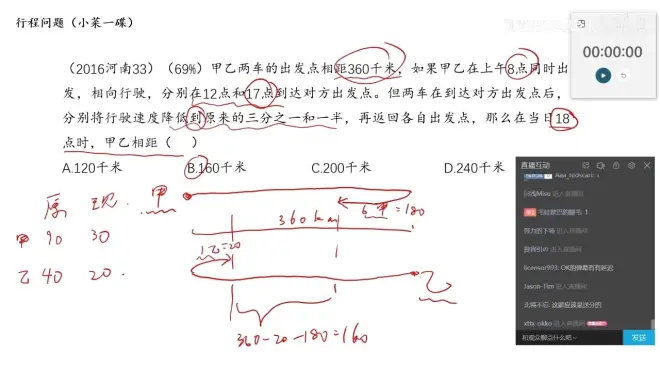 行程问题（小菜一碟）
00:00:00
（2016河南33）（69%）甲乙两车的出发点相距360千米，如果甲乙在上午8点同时出
发，相向行驶，分别在12点和17点到达对方出发点。但两车在到达对方出发点后，
分别将行驶速度降低到原来的三分之一和一半，再返回各自出发点，那么在当日18
点时，甲乙相距（ ）
A.120千米 B.160千米 C.200千米 D.240千米
直播互动
原 现 甲
6甲=180
360km
甲 90 30
1乙=20
乙 40 20
乙
360-20-180=160
进入直播间
努力的下场 进入直播间
进入直播间
licensor993: OK的弹幕有有延迟
Jason-Tim 进入直播间
xttx-okko 进入直播间
和观众聊点什么吧~
发送